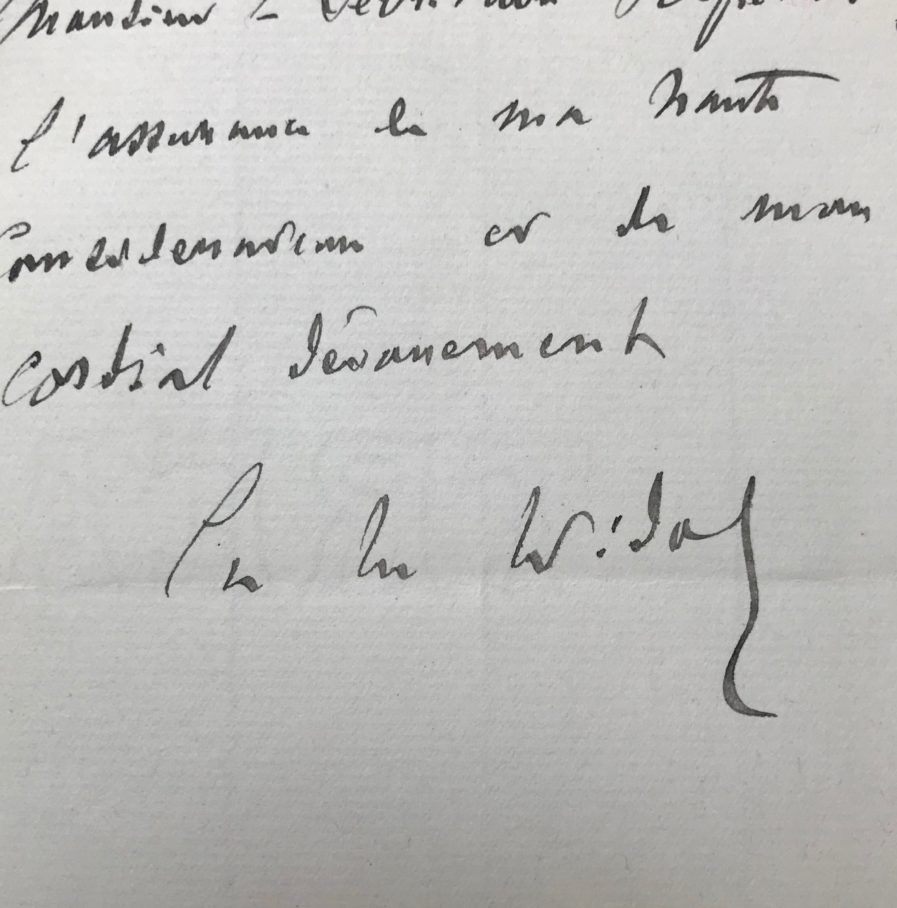 Monsieur le Secrétaire
l'assurance de ma haute
considération et de mon
cordial dévouement
Ch M Widor